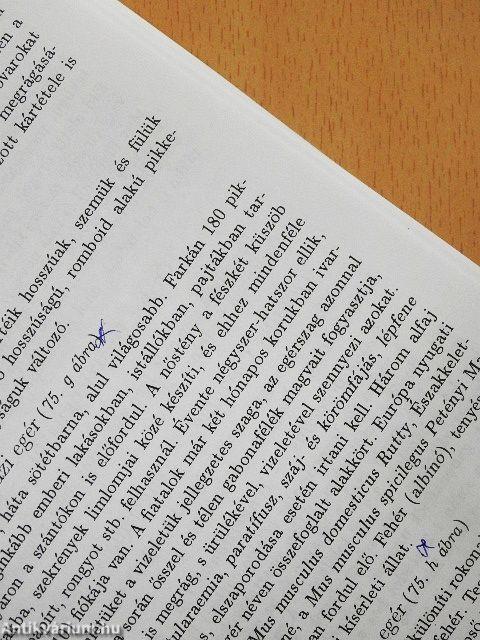 en a
ovarokat
megrágásá-
ott kártétele is
rteik hosszúak, szemük és fülük
ó hosszúságú, romboid alakú pikke-
águk változó.
zi egér (75. g ábra)
háta sötétbarna, alul világosabb. Farkán 180 pik-
nkább emberi lakásokban, istállókban, pajtákban tar-
aron a szántókon is előfordul. A nőstény a fészkét küszöb
ba, szekrények limlomjai közé készíti, és ehhez mindenféle
írt, rongyot stb. felhasznál. Évente négyszer-hatszor ellik,
fiókája van. A fiatalok már két hónapos korukban ivar-
üket a vizeletük jellegzetes szaga, az egérszag azonnal
során ősszel és télen gabonafélék magvait fogyasztja,
is megrág, s ürülékével, vizeletével szennyezi azokat.
ularaemia, paratífusz, száj- és körömfájás, lépfene
elszaporodása esetén irtani kell. Három alfaj
er néven összefoglalt alakkört. Európa nyugati
us musculus domesticus Rutty, Északkelet-
é, a Mus musculus spicilegus Petényi Ma
fordul elő. Fehér (albínó), tenyés
i kísérleti állat.
egér (75. h ábra)
ülöníti rokon
hér. Te
Antikvarium.hu